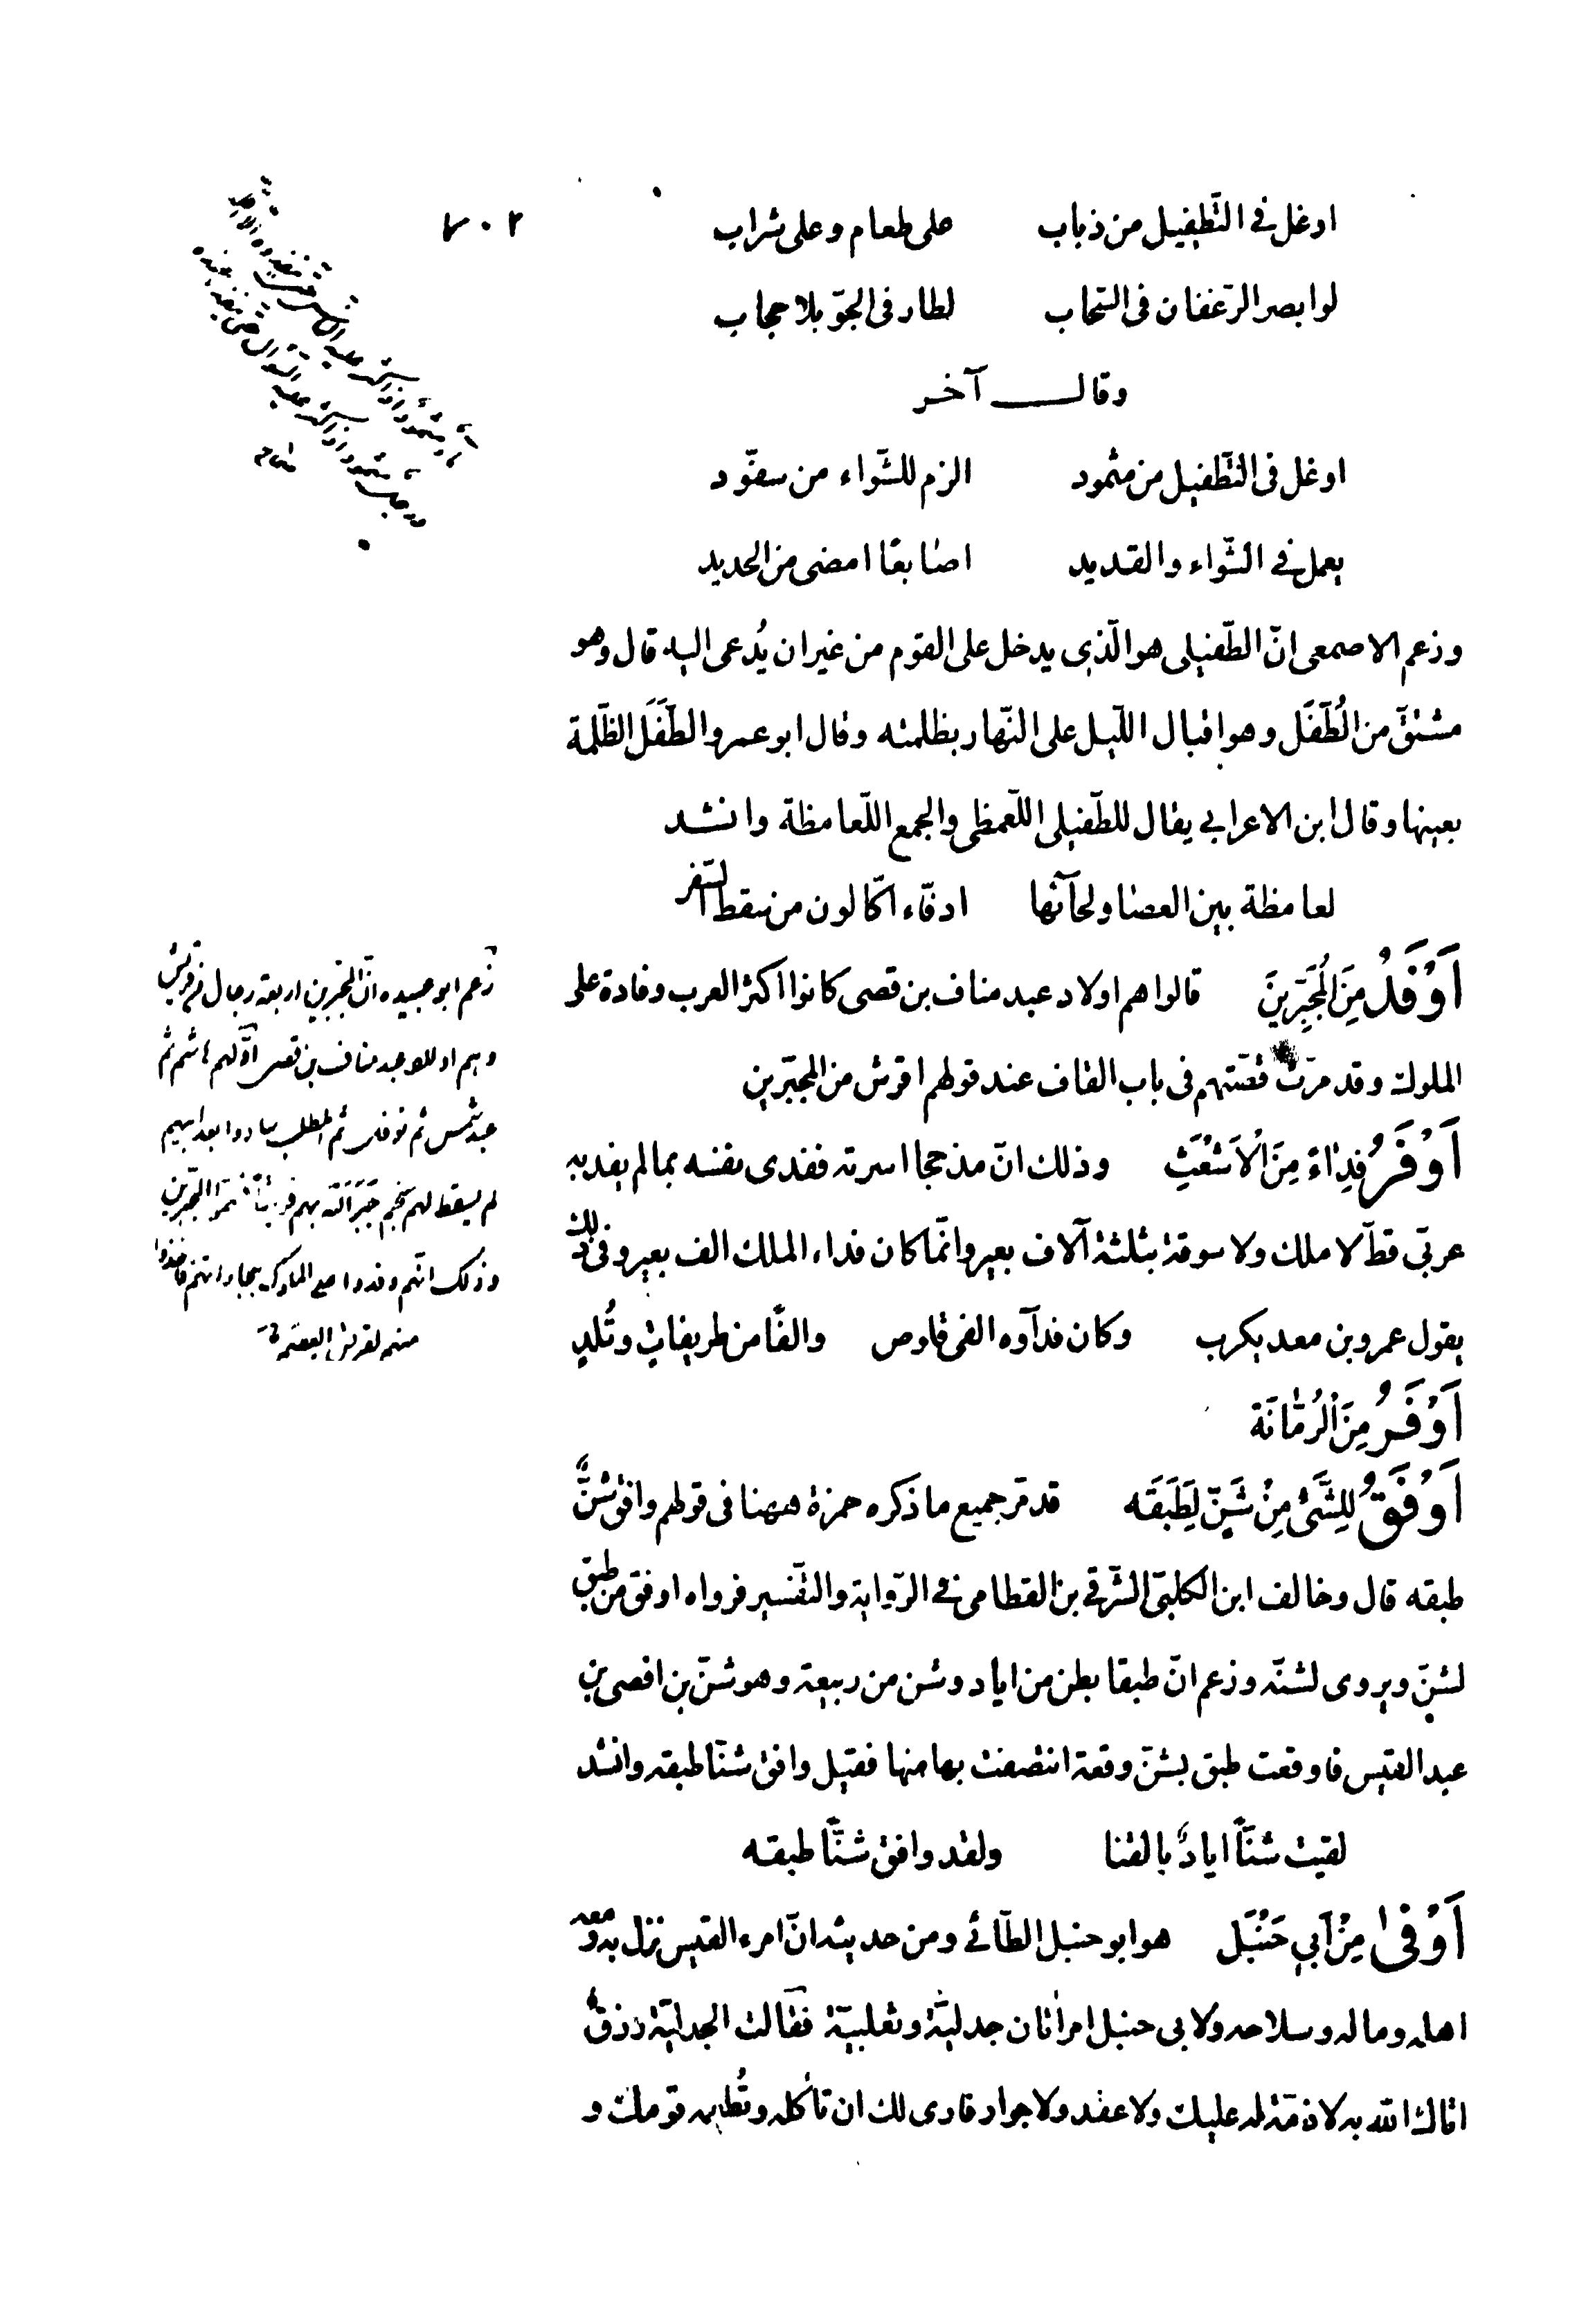 ٧٠٢
اوغل فى التّطفيل من ذباب على طعام وعلى شراب
لو ابصر الرّغفان فى السّحاب لطار فى الجوّ بلا حجاب
وقال آخر
اوغل فى التّطفيل من مثمود الزم للشّواء من سفّود
يعمل فى الشّواء والقديد اصابعًا امضى من الحديد
وزعم الاصمعى انّ الطّفيلى هو الّذى يدخل على القوم من غير ان يُدعى اليه قال وهو
مشتقّ من الُطَّفَل وهو اقبال اللّيل على النّهار بظلمته وقال ابو عمرو الطَّفَل الظّلمة
بعينها وقال ابن الاعرابى يقال للطّفيلى اللّعمظى والجمع اللّعامظة وانشد
لعامظة بين العصا ولحآئها ادقّاء اكّالون من سقط السّفر
اَوْفَدُ مِنَ الْمُجَبِّرِينَ قالوا هم اولاد عبد مناف بن قصى كانوا اكثر العرب وفادة على
الملوك وقد مرّت قصّتهم فى باب القاف عند قولهم اقرش من المجبّرين
اَوْفَرُ فِدَاءً مِنَ الْاَشْعَثِ وذلك انّ مذحجا اسرته ففدى نفسه بما لم يفد به
عربىّ قطّ لا ملك ولا سوقة بثلثة آلاف بعير وانّما كان فداء الملك الف بعير وفى ذلك
يقول عمرو بن معد يكرب وكان فدآوه الفى قلوص والفًا من طريفاتٍ وتُلدٍ
اَوْفَرُ مِنَ الرُّمَّانَة
اَوْفَقُ لِلشَّىْ مِنْ شَنٍّ لِطَبَقَه قد مرّ جميع ما ذكره حمزة ههنا فى قولهم وافق شنٌّ
طبقه قال وخالف ابن الكلبىّ الشّرقى بن القطامى فى الرّواية والتّفسير فرواه اوفق من طبق
لشنّ ويروى لشنّه وزعم انّ طبقا بطن من اياد وشن من ربيعة وهو شنّ بن افصى بن
عبد القيس فاوقعت طبق بشنّ وقعة انتصفت بها منها فقيل وافق شنّا طبقه وانشد
لقيت شنًّا ايادٌ بالقنا ولقد وافق شنًّا طبقه
اَوْفىٰ مِنْ اَبِى حَنْبَل هو ابو حنبل الطّائى ومن حديثه انّ امرء القيس نزل به ومعه
اهله وماله وسلاحه ولابى حنبل امرأتان جدليّة وثعلبيّة فقالت الجدليّة رزقٌ
اتاك الله به لا ذمّة له عليك ولا عقد ولا جوار فارى لك ان تأكله وتُطعمه قومك و
زعم ابو عبيده انّ المجبّرين اربعة رجال من قريش
وهم اولاد عبد مناف بن قصى اوّلهم هاشم ثم
عبد شمس ثم نوفل ثم المطلب سادوا بعد ابيهم
لم يسقط لهم نجم جَبَرَ اللّه بهم قريشًا فسمّوا المجبّرين
وذلك انّهم وفدوا على الملوك بتجاراتهم فاخذوا
منهم لقريش العصم